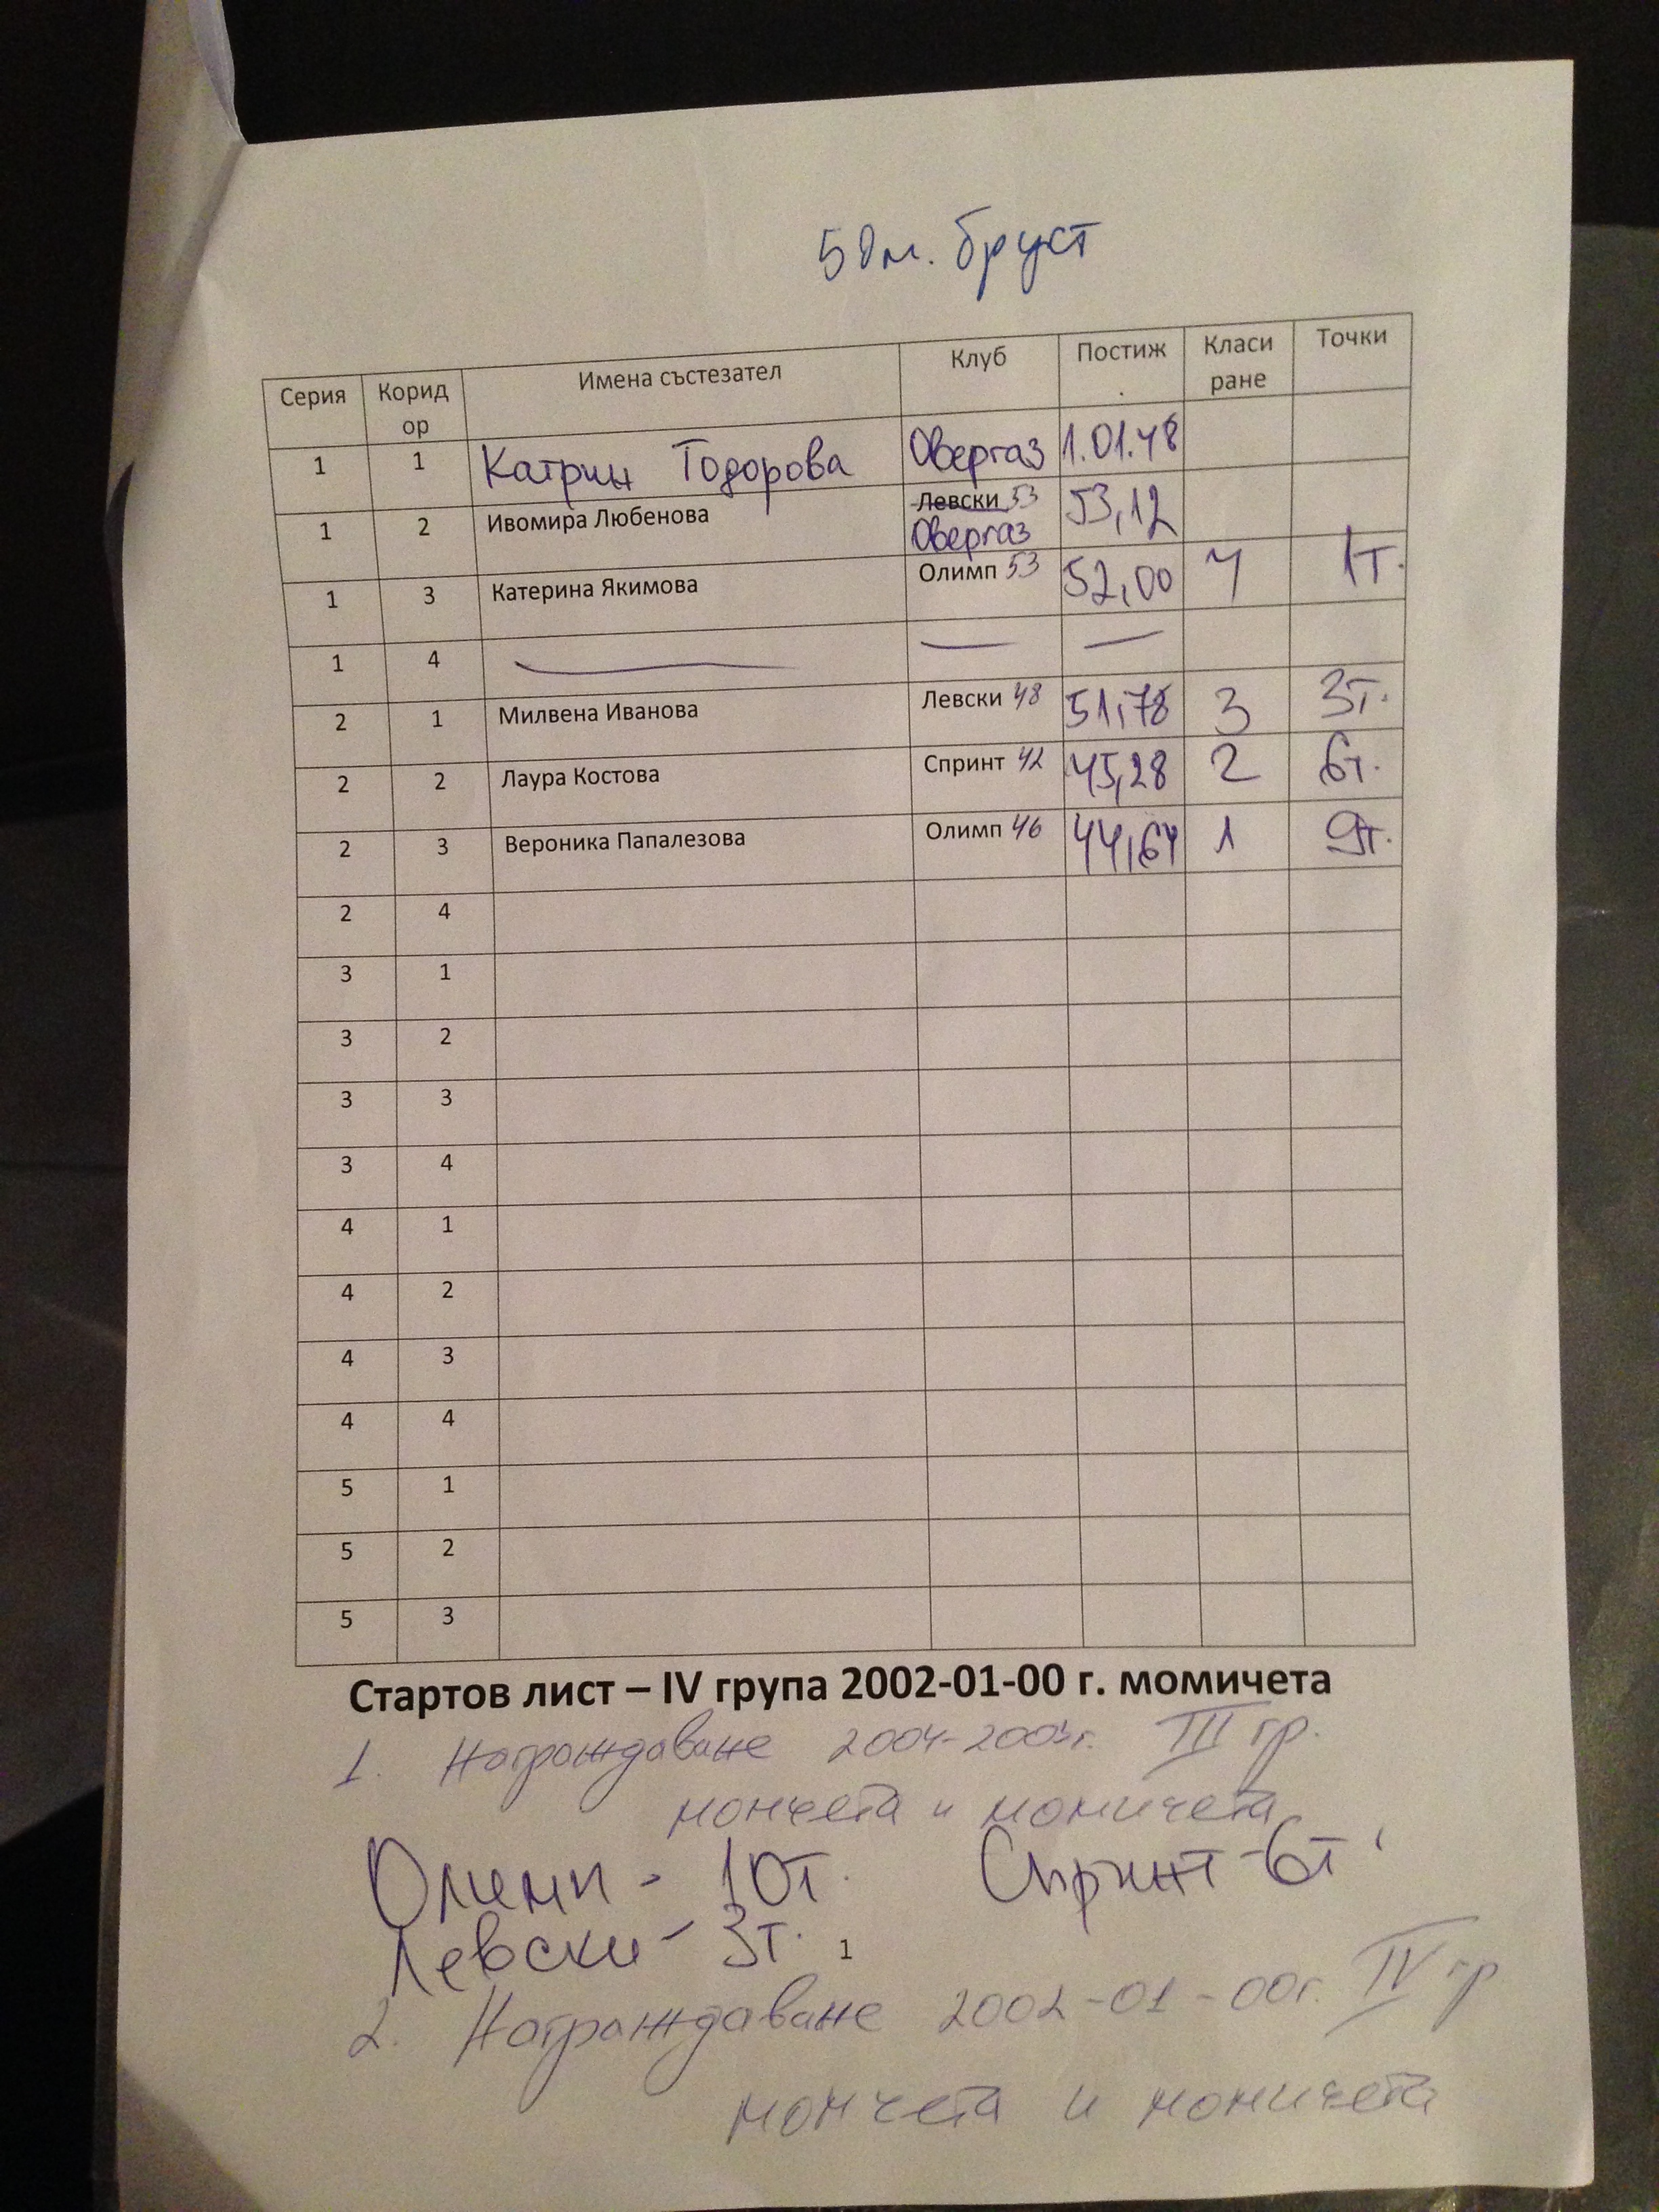 50м. бруст
Серия Коридор Имена състезател Клуб Постиж. Класиране Точки
1 1 Катрин Тодорова Овергаз 1.01.48
1 2 Ивомира Любенова Левски 53 Овергаз 53,12
1 3 Катерина Якимова Олимп 53 52,00 4 1т.
1 4 — — —
2 1 Милвена Иванова Левски 48 51,78 3 3т.
2 2 Лаура Костова Спринт 42 45,28 2 6т.
2 3 Вероника Папалезова Олимп 46 44,64 1 9т.
2 4
3 1
3 2
3 3
3 4
4 1
4 2
4 3
4 4
5 1
5 2
5 3
Стартов лист – IV група 2002-01-00 г. момичета
1. Награждаване 2004-2003г. III гр.
момчета и момичета
Олимп - 10т. Спринт - 6т.
Левски - 3т.
1
2. Награждаване 2002-01-00г. IV гр
момчета и момичета